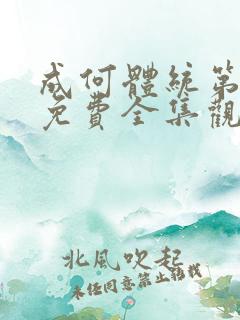 成何體統第
免費全集觀
北風吹起
未经同意禁止转载